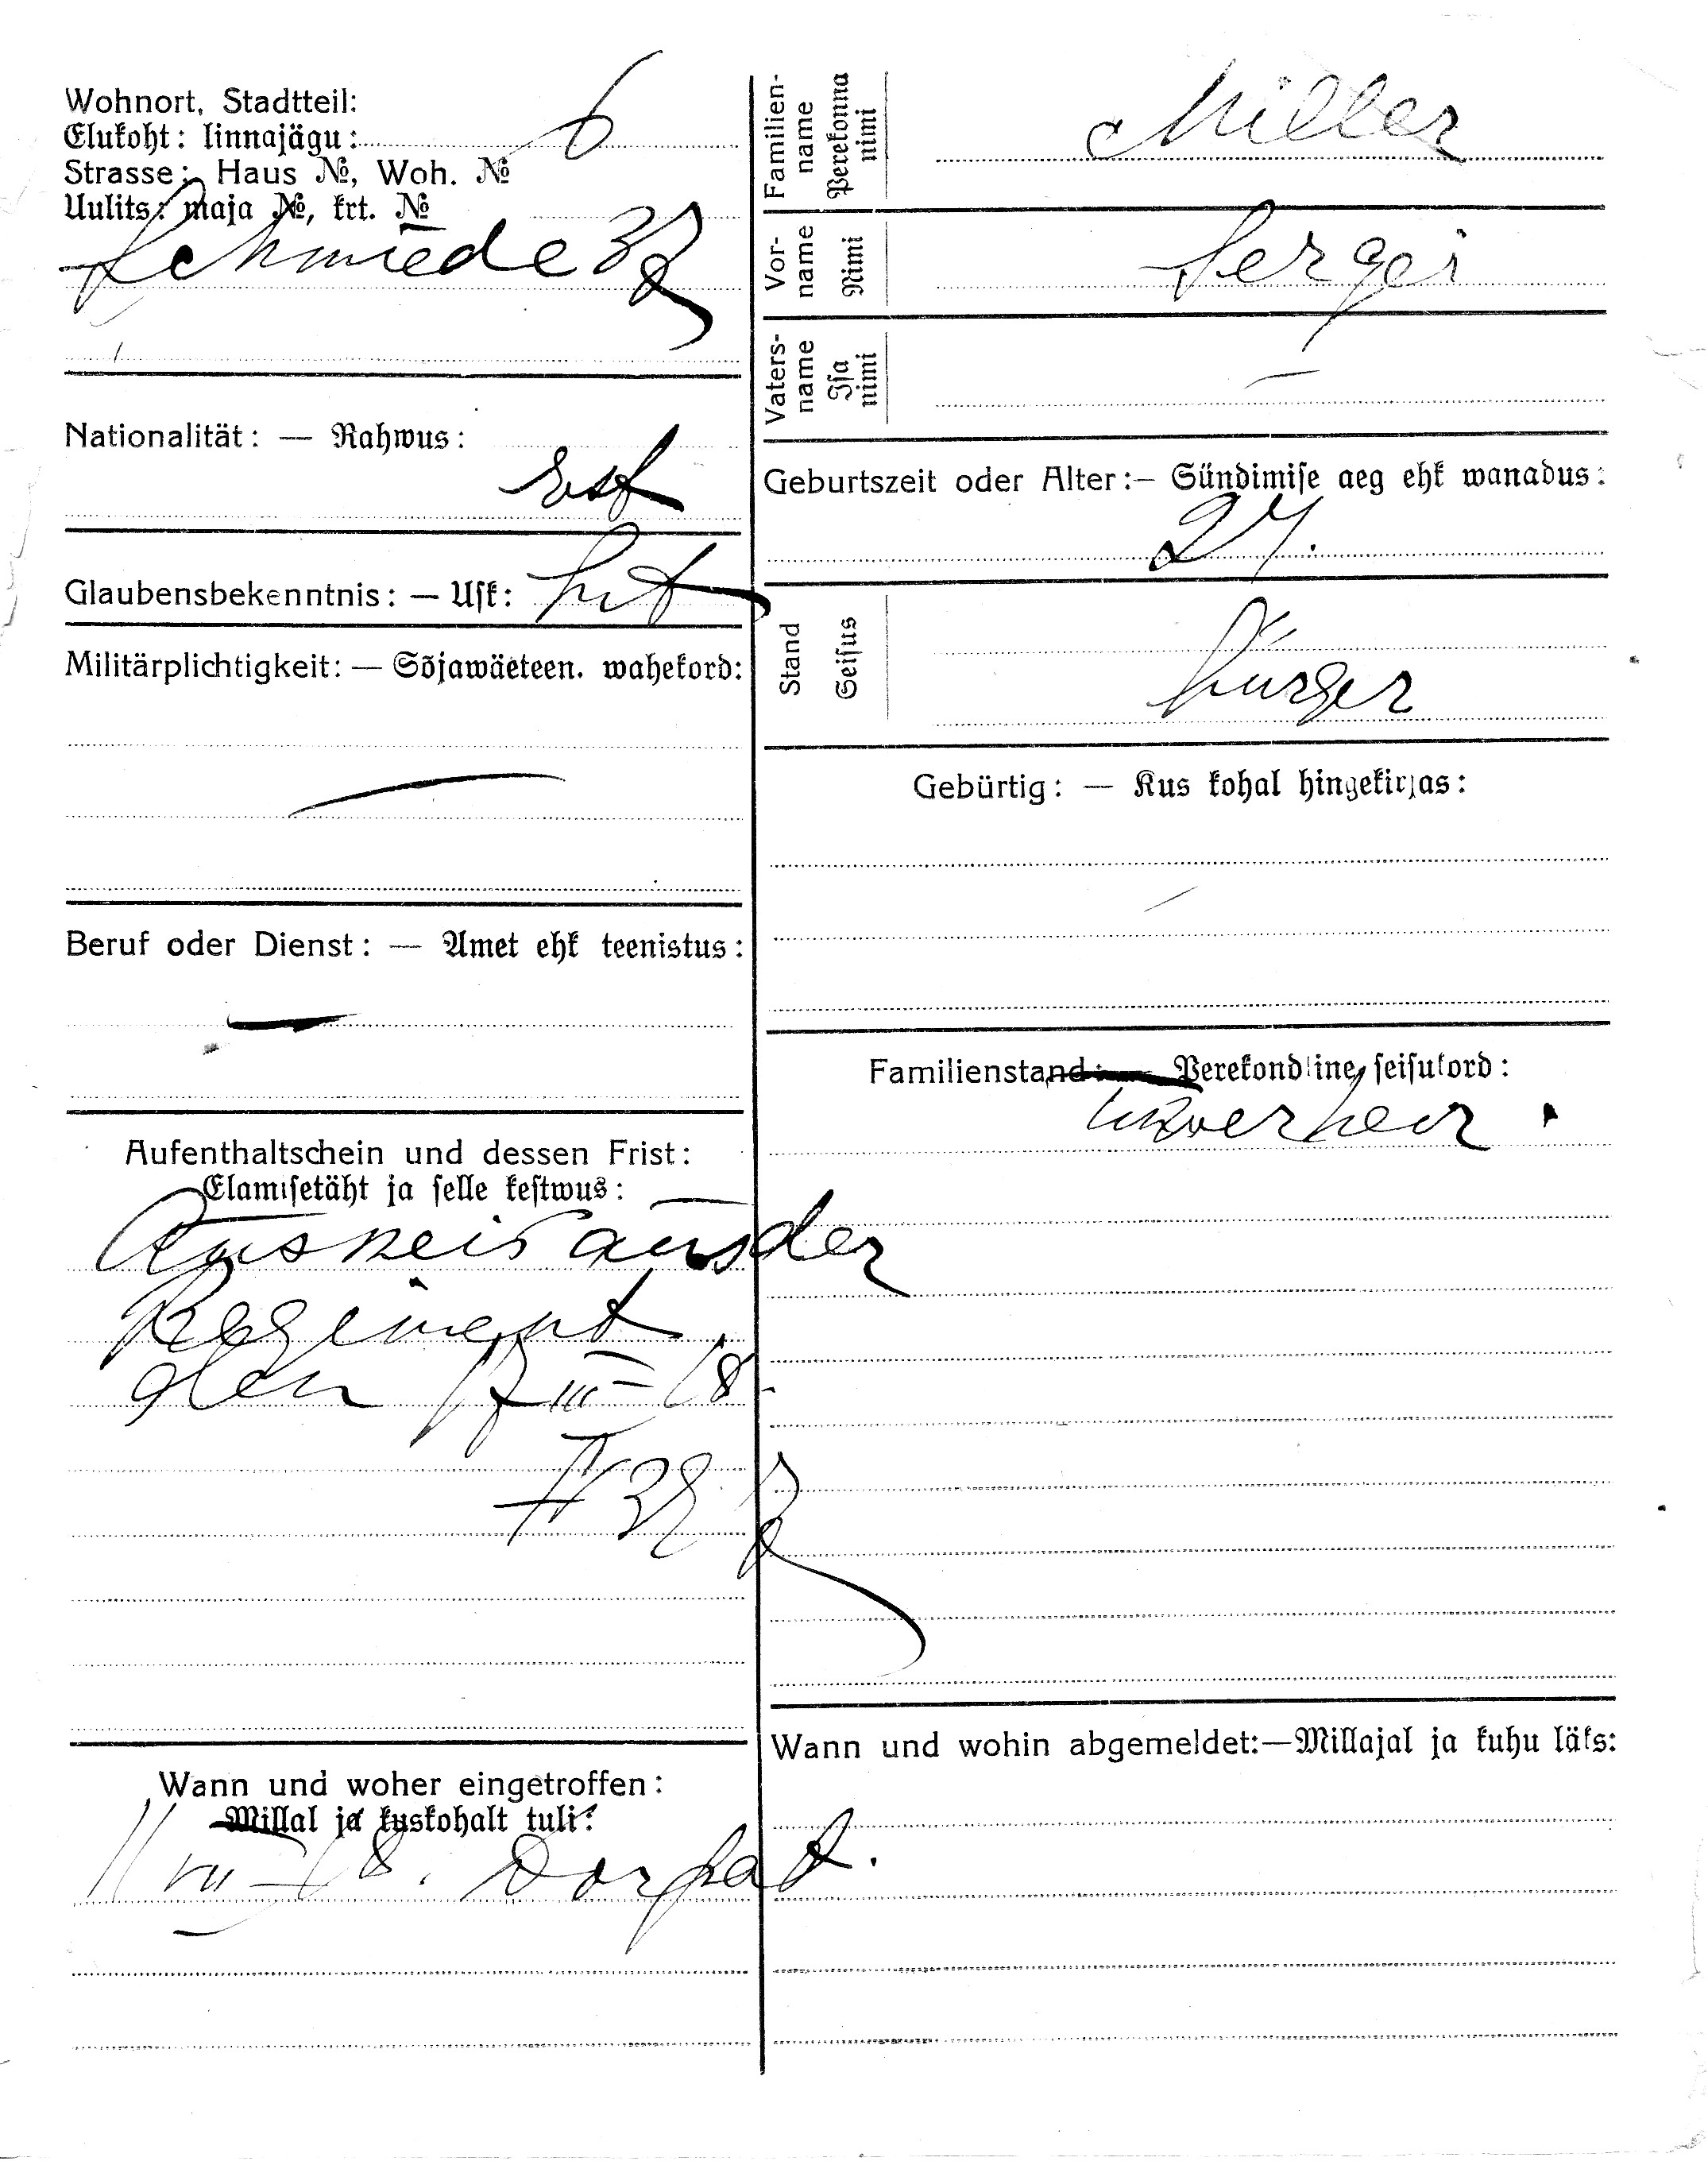 Wohnort, Stadtteil:
Elukoht: linnajägu: 6
Strasse: Haus №, Woh. №
Uulits: maja №, krt. №
Schmiede 37
Nationalität: — Rahwus:
Est
Glaubensbekenntnis: — Usk: Lut
Militärplichtigkeit: — Sõjawäeteen. wahekord:
—
Beruf oder Dienst: — Amet ehk teenistus:
—
Aufenthaltschein und dessen Frist:
Elamisetäht ja selle kestwus:
aus der
Regiment
den 17 III 18.
Wann und woher eingetroffen:
Millal ja kuskohalt tuli?
11 VII 18. Dorpat.
Familien-
name
Perekonna
nimi
Miller
Vor-
name
Nimi
Sergei
Vaters-
name
Isa
nimi
—
Geburtszeit oder Alter:— Sündimise aeg ehk wanadus:
27.
Stand
Seisus
Bürger
Gebürtig: — Kus kohal hingekirjas:
Familienstand: — Perekondline seisukord:
Wann und wohin abgemeldet:—Millajal ja kuhu läks: